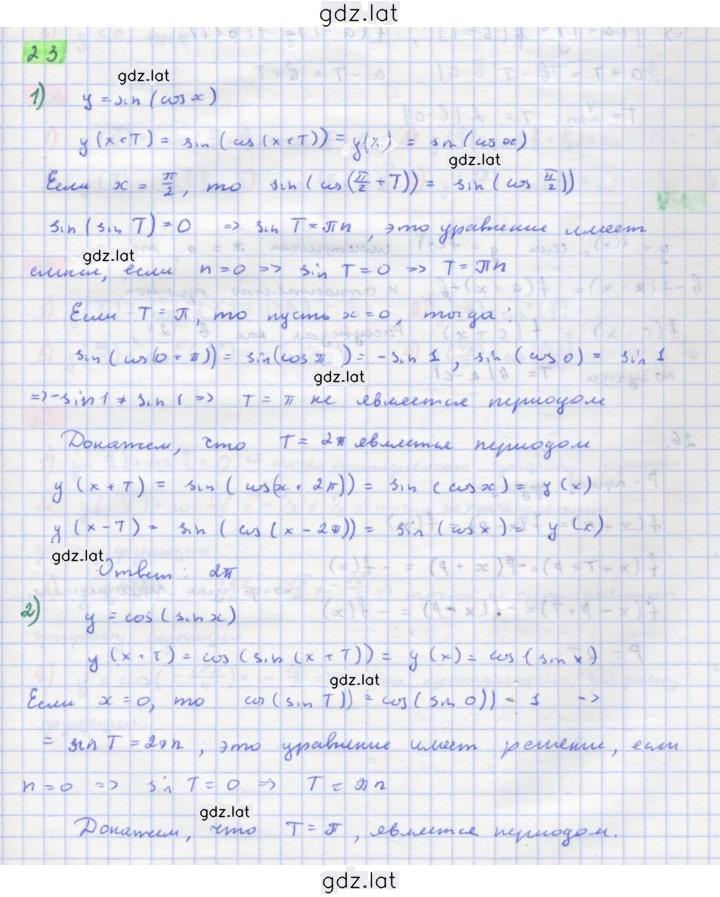 gdz.lat
23.
gdz.lat
1) y = sin(cos x)
y(x+T) = sin(cos(x+T)) = y(x) = sin(cos x)
gdz.lat
Если x = π/2, то sin(cos(π/2 + T)) = sin(cos π/2))
sin(sin T) = 0 ⇒ sin T = πn, это уравнение имеет
gdz.lat
смысл, если n = 0 ⇒ sin T = 0 ⇒ T = πn
Если T = π, то пусть x = 0, тогда:
sin(cos(0 + π)) = sin(cos π) = -sin 1, sin(cos 0) = sin 1
gdz.lat
⇒ -sin 1 ≠ sin 1 ⇒ T = π не является периодом
Докажем, что T = 2π является периодом
y(x+T) = sin(cos(x + 2π)) = sin(cos x) = y(x)
y(x-T) = sin(cos(x - 2π)) = sin(cos x) = y(x)
gdz.lat
Ответ: 2π
2) y = cos(sin x)
y(x+T) = cos(sin(x+T)) = y(x) = cos(sin x)
gdz.lat
Если x = 0, то cos(sin T)) = cos(sin 0)) = 1 ⇒
= sin T = 2πn, это уравнение имеет решение, если
n = 0 ⇒ sin T = 0 ⇒ T = πn
gdz.lat
Докажем, что T = π, является периодом.
gdz.lat